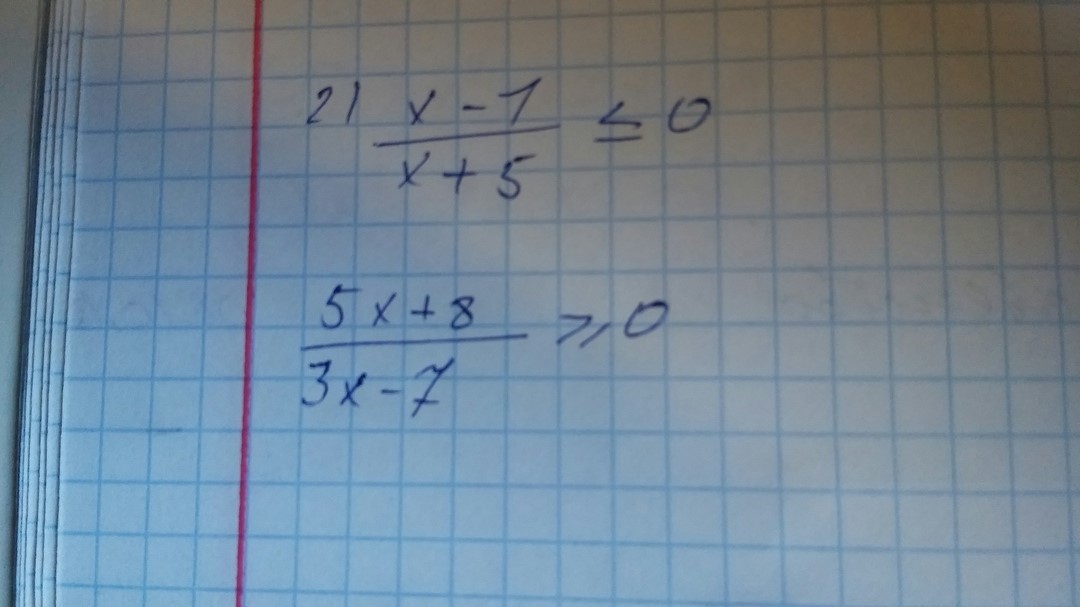 2) x - 1
x + 5 ≤ 0
5x + 8
3x - 7 ≥ 0